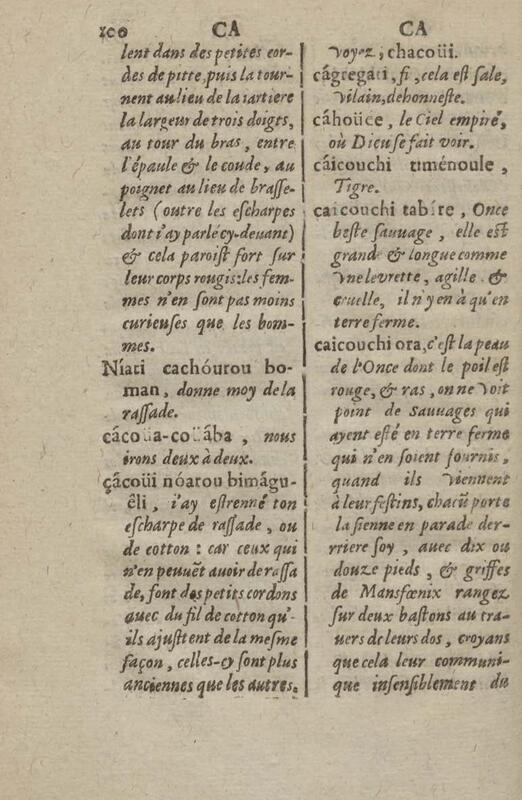 100 CA CA
lent dans des petites cor-
des de pitte, puis la tour-
nent au lieu de la iartiere
la largeur de trois doigts,
au tour du bras, entre
l'épaule & le coude, au
poignet au lieu de brasse-
lets (outre les escharpes
dont i'ay parlé cy-deuant)
& cela paroist fort sur
leur corps rougis: les fem-
mes n'en sont pas moins
curieuses que les hom-
mes.
Níati cachóurou bo-
man, donne moy de la
rassade.
cácoüa-coüába, nous
irons deux à deux.
çácoüi nóatou bimágu-
êli, i'ay estrenné ton
escharpe de rassade, ou
de cotton: car ceux qui
n'en peuuēt auoir de rassa
de, font des petits cordons
auec du fil de cotton qu'-
ils ajustent de la mesme
façon, celles-cy sont plus
anciennes que les autres.
voyez; chacoüi.
cágregati, fi, cela est sale,
vilain, dehonneste.
cáhoüce, le Ciel empiré,
où Dieu se fait voir.
cáicouchi timénoule,
Tigre.
caicouchi tabíre, Once
beste sauuage, elle est
grande & longue comme
vne levrette, agille &
cruelle, il n'y en à qu'en
terre ferme.
caicouchi ora, c'est la peau
de l'Once dont le poil est
rouge, & ras, on ne voit
point de Sauuages qui
ayent esté en terre ferme
qui n'en soient fournis,
quand ils viennent
à leur festins, chacū porte
la sienne en parade der-
rriere soy, auec dix ou
douze pieds, & griffes
de Mansfœnix rangez
sur deux bastons au tra-
uers de leurs dos, croyans
que cela leur communi-
que insensiblement du